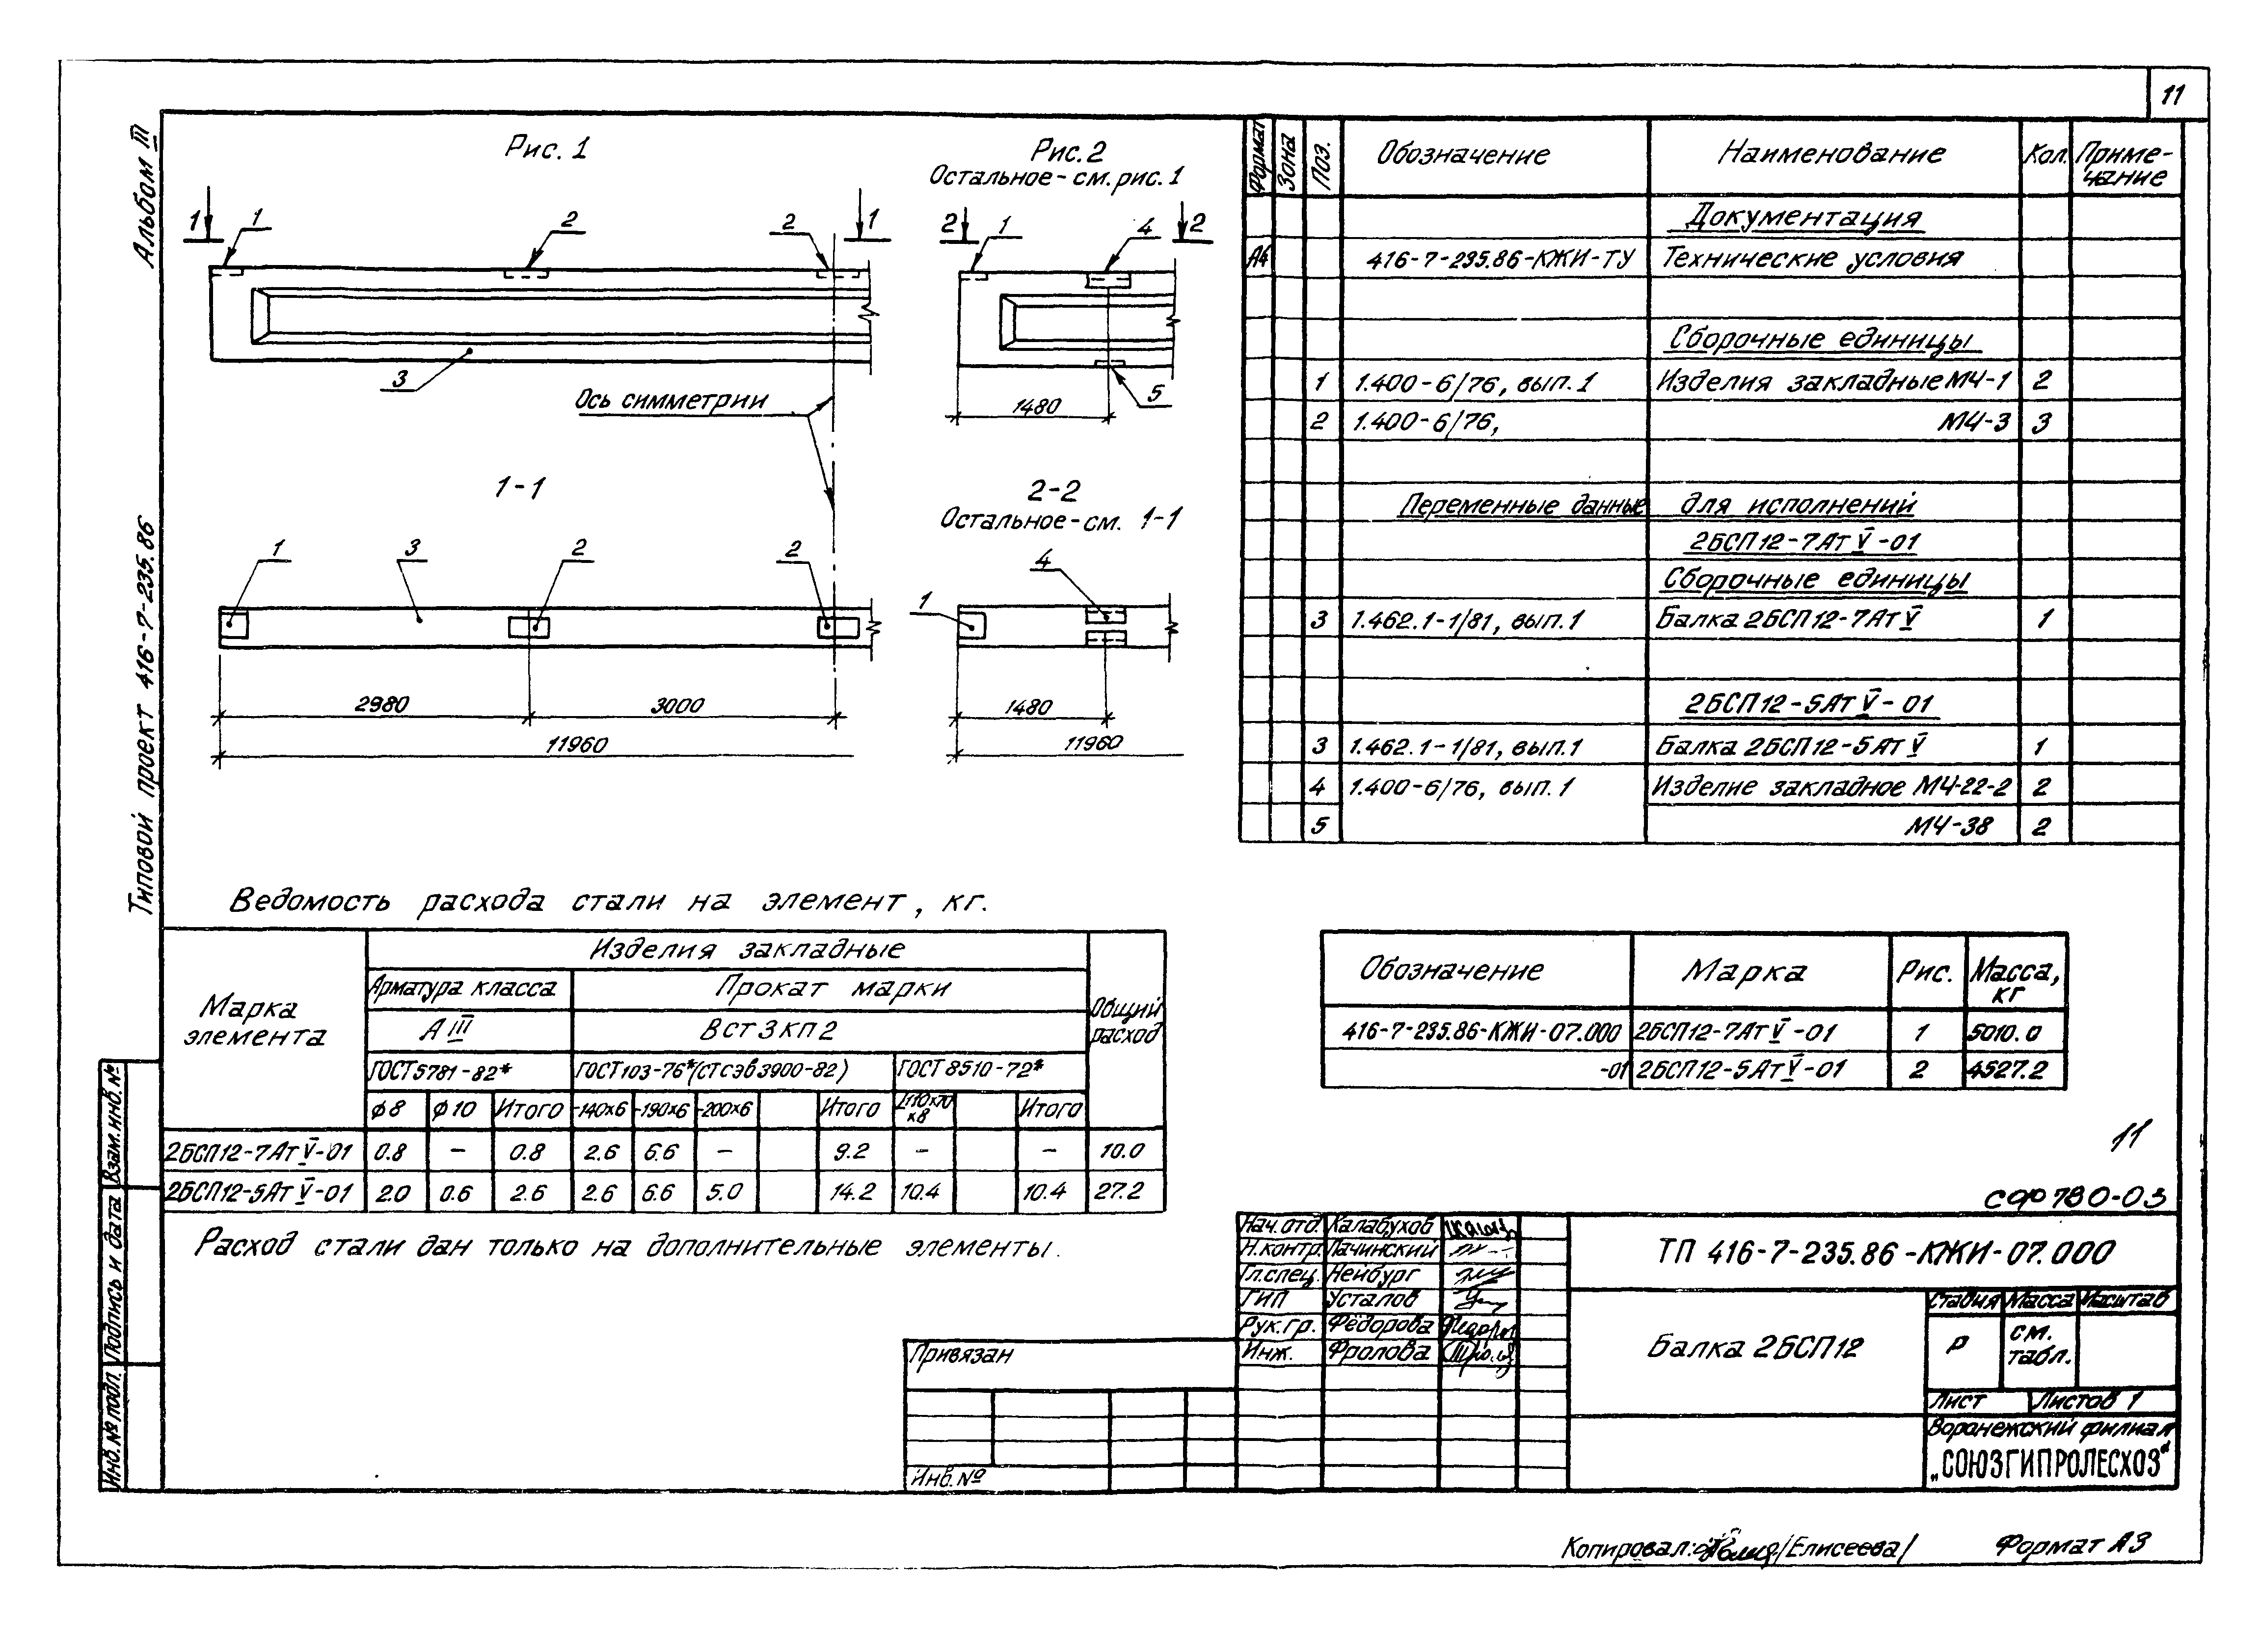 11
Альбом III
Типовой проект 416-7-235.86
Рис. 1
1 1 2 2 1
3
Ось симметрии
Рис. 2
Остальное - см. рис. 1
2 1 4 2
5
1480
1-1
1 3 2 2
2980 3000
11960
2-2
Остальное - см. 1-1
4
1
1480
11960
Формат Зона Поз. Обозначение Наименование Кол. Приме-
чание
Документация
А4 416-7-235.86-КЖИ-ТУ Технические условия
Сборочные единицы
1 1.400-6/76, вып. 1 Изделия закладные МЧ-1 2
2 1.400-6/76, МЧ-3 3
Переменные данные для исполнений
2БСП12-7АтV-01
Сборочные единицы
3 1.462.1-1/81, вып. 1 Балка 2БСП12-7АтV 1
2БСП12-5АтV-01
3 1.462.1-1/81, вып. 1 Балка 2БСП12-5АтV 1
4 1.400-6/76, вып. 1 Изделие закладное МЧ-22-2 2
5 МЧ-38 2
Ведомость расхода стали на элемент, кг.
Марка элемента
Изделия закладные
Общий расход
Арматура класса Прокат марки
А III Вст3кп2
ГОСТ 5781-82* ГОСТ 103-76* (СТ СЭВ 3900-82) ГОСТ 8510-72*
ϕ8 ϕ10 Итого -140х6 -190х6 -200х6 Итого L110х70х8 Итого
2БСП12-7АтV-01 0.8 – 0.8 2.6 6.6 – 9.2 – – 10.0
2БСП12-5АтV-01 2.0 0.6 2.6 2.6 6.6 5.0 14.2 10.4 10.4 27.2
Расход стали дан только на дополнительные элементы.
Обозначение Марка Рис. Масса, кг
416-7-235.86-КЖИ-07.000 2БСП12-7АтV-01 1 5010.0
-01 2БСП12-5АтV-01 2 4527.2
11
СФ 780-03
Нач. отд. Калабухов
Н.контр. Лачинский
Гл.спец. Нейбург
ГИП Усталов
Рук.гр. Фёдорова
Инж. Фролова
ТП 416-7-235.86-КЖИ-07.000
Балка 2БСП12
Стадия Масса Масштаб
Р см. табл.
Лист Листов 1
Воронежский филиал
„СОЮЗГИПРОЛЕСХОЗ"
Привязан
Инв. №
Взам. инв. №
Подпись и дата
Инв. № подл.
Копировал: /Елисеева/ Формат А3